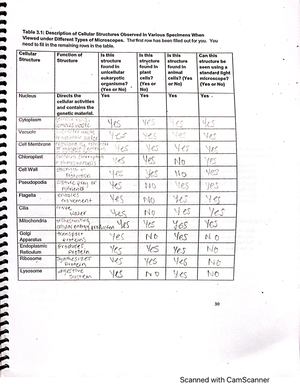 Table 3.1: Description of Cellular Structures Observed in Various Specimens When
Viewed under Different Types of Microscopes. The first row has been filled out for you. You
need to fill in the remaining rows in the table.
Cellular Structure | Function of Structure | Is this structure found in unicellular eukaryotic organisms? (Yes or No) | Is this structure found in plant cells? (Yes or No) | Is this structure found in animal cells? (Yes or No) | Can this structure be seen using a standard light microscope? (Yes or No)
Nucleus | Directs the cellular activities and contains the genetic material. | Yes | Yes | Yes | Yes
Cytoplasm | Yes | Yes | Yes | Yes
Vacuole | Yes | Yes | Yes | Yes
Cell Membrane | Yes | Yes | Yes | Yes
Chloroplast | Yes | Yes | No | Yes
Cell Wall | Yes | Yes | No | Yes
Pseudopodia | Yes | No | Yes | Yes
Flagella | enables movement | Yes | No | Yes | Yes
Cilia | Yes | No | Yes | Yes
Mitochondria | Yes | Yes | Yes | Yes
Golgi Apparatus | transport proteins | Yes | NO | Yes | NO
Endoplasmic Reticulum | Produces Protein | Yes | Yes | Yes | No
Ribosome | Synthesizes Protein | Yes | Yes | Yes | No
Lysosome | digestive system | Yes | NO | Yes | NO
39
Scanned with CamScanner